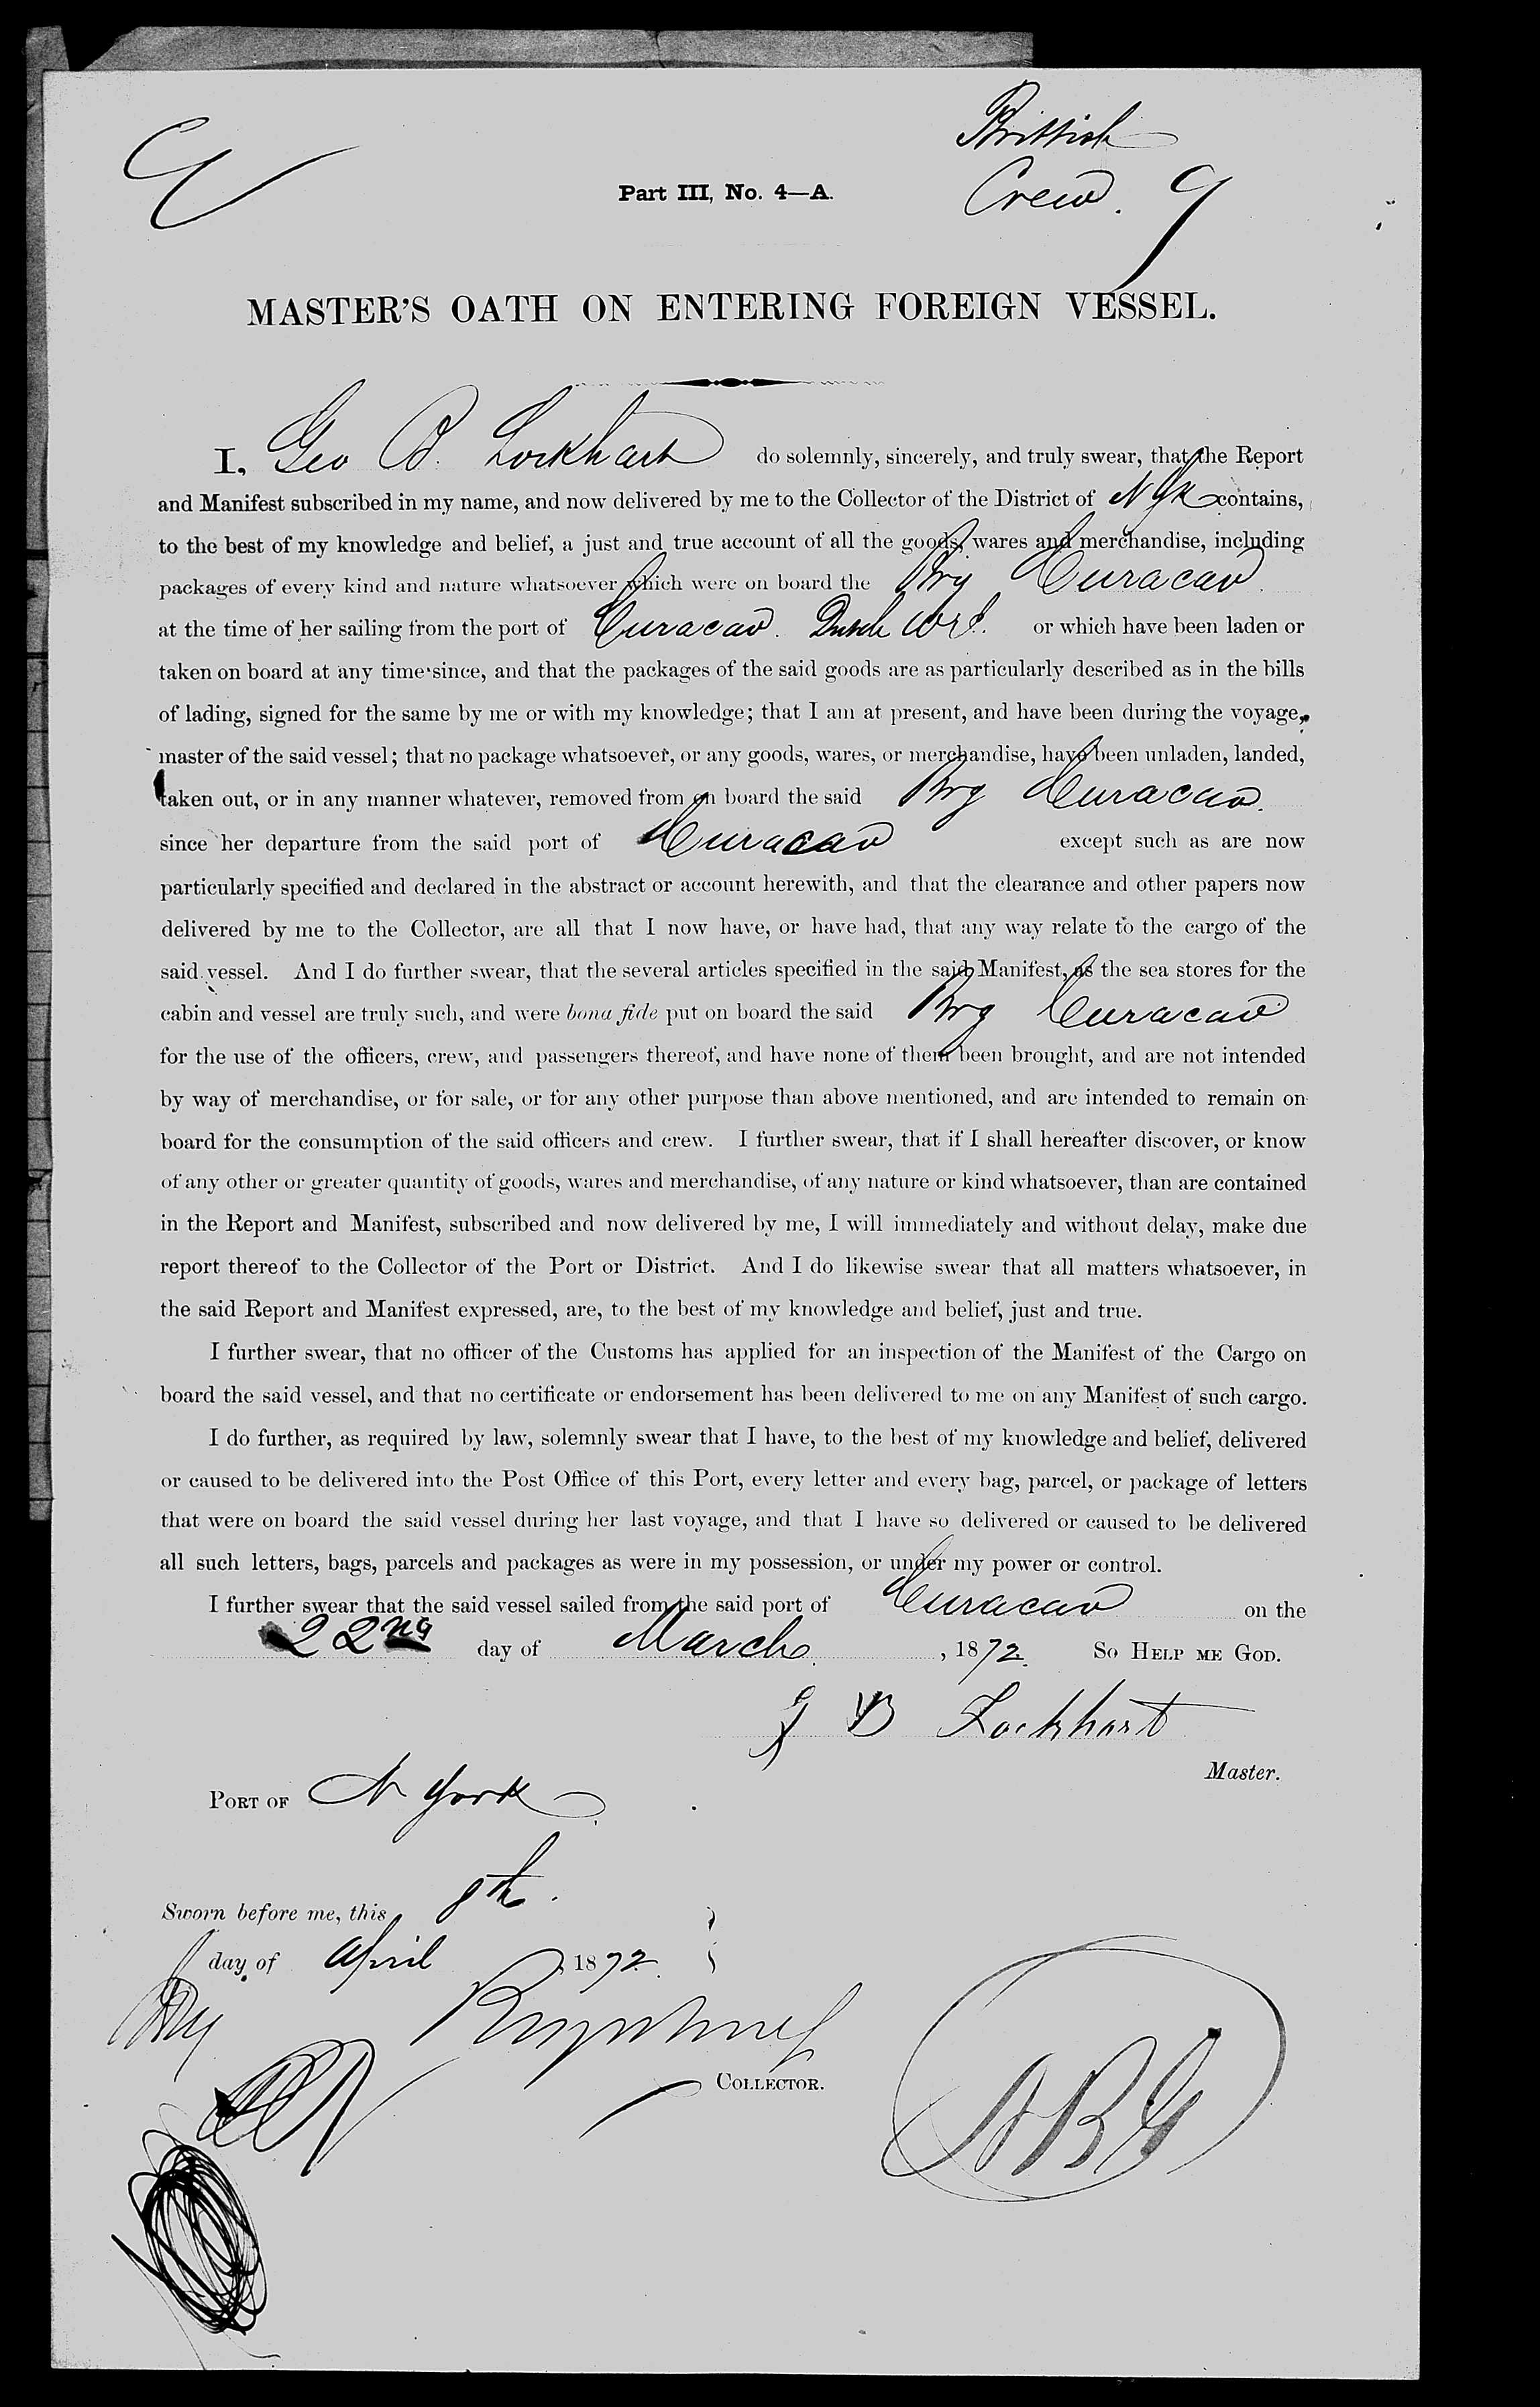 Brittish
Part III, No. 4—A.
Crew. 9
MASTER'S OATH ON ENTERING FOREIGN VESSEL.
I, Geo B. Lockhart do solemnly, sincerely, and truly swear, that the Report
and Manifest subscribed in my name, and now delivered by me to the Collector of the District of N Yk contains,
to the best of my knowledge and belief, a just and true account of all the goods, wares and merchandise, including
packages of every kind and nature whatsoever which were on board the Brig Curacao
at the time of her sailing from the port of Curacao. Dutch W I. or which have been laden or
taken on board at any time since, and that the packages of the said goods are as particularly described as in the bills
of lading, signed for the same by me or with my knowledge; that I am at present, and have been during the voyage,
master of the said vessel; that no package whatsoever, or any goods, wares, or merchandise, have been unladen, landed,
taken out, or in any manner whatever, removed from on board the said Brg Curacao.
since her departure from the said port of Curacao except such as are now
particularly specified and declared in the abstract or account herewith, and that the clearance and other papers now
delivered by me to the Collector, are all that I now have, or have had, that any way relate to the cargo of the
said vessel. And I do further swear, that the several articles specified in the said Manifest, as the sea stores for the
cabin and vessel are truly such, and were bona fide put on board the said Brg Curacao
for the use of the officers, crew, and passengers thereof, and have none of them been brought, and are not intended
by way of merchandise, or for sale, or for any other purpose than above mentioned, and are intended to remain on
board for the consumption of the said officers and crew. I further swear, that if I shall hereafter discover, or know
of any other or greater quantity of goods, wares and merchandise, of any nature or kind whatsoever, than are contained
in the Report and Manifest, subscribed and now delivered by me, I will immediately and without delay, make due
report thereof to the Collector of the Port or District. And I do likewise swear that all matters whatsoever, in
the said Report and Manifest expressed, are, to the best of my knowledge and belief, just and true.
I further swear, that no officer of the Customs has applied for an inspection of the Manifest of the Cargo on
board the said vessel, and that no certificate or endorsement has been delivered to me on any Manifest of such cargo.
I do further, as required by law, solemnly swear that I have, to the best of my knowledge and belief, delivered
or caused to be delivered into the Post Office of this Port, every letter and every bag, parcel, or package of letters
that were on board the said vessel during her last voyage, and that I have so delivered or caused to be delivered
all such letters, bags, parcels and packages as were in my possession, or under my power or control.
I further swear that the said vessel sailed from the said port of Curacao on the
22nd day of March, 1872. So Help me God.
G B Lockhart
Master.
Port of N York
Sworn before me, this 8th.
day of April 1872.
Collector.
ABG